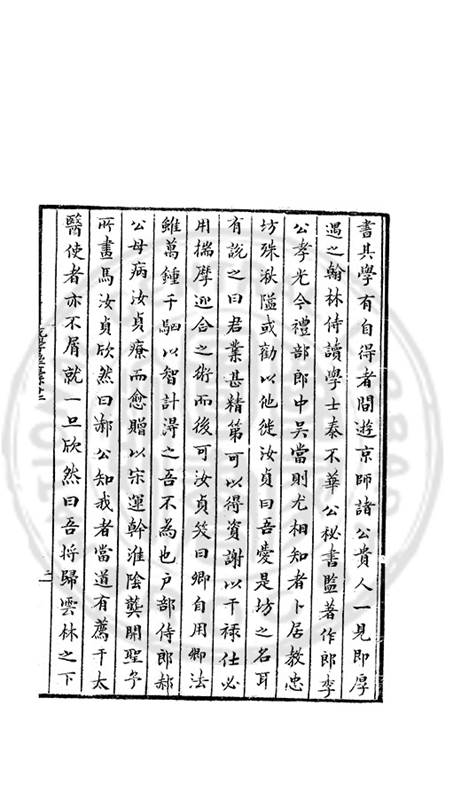 書其學有自得者間遊京師諸公貴人一見即厚
遇之翰林侍讀學士泰不華公秘書監著作郎李
公孝光今禮部郎中吳當則尤相知者卜居教忠
坊殊湫隘或勸以他徙汝貞曰吾愛是坊之名耳
有說之曰君業甚精第可以得資謝以干祿仕必
用揣摩迎合之術而後可汝貞笑曰卿自用卿法
雖萬鍾千駟以智計得之吾不為也戶部侍郎郝
公母病汝貞療而愈贈以宋運幹淮陰龔開聖予
所畫馬汝貞欣然曰郝公知我者當道有薦于太
醫使者亦不屑就一旦欣然曰吾將歸雲林之下
二